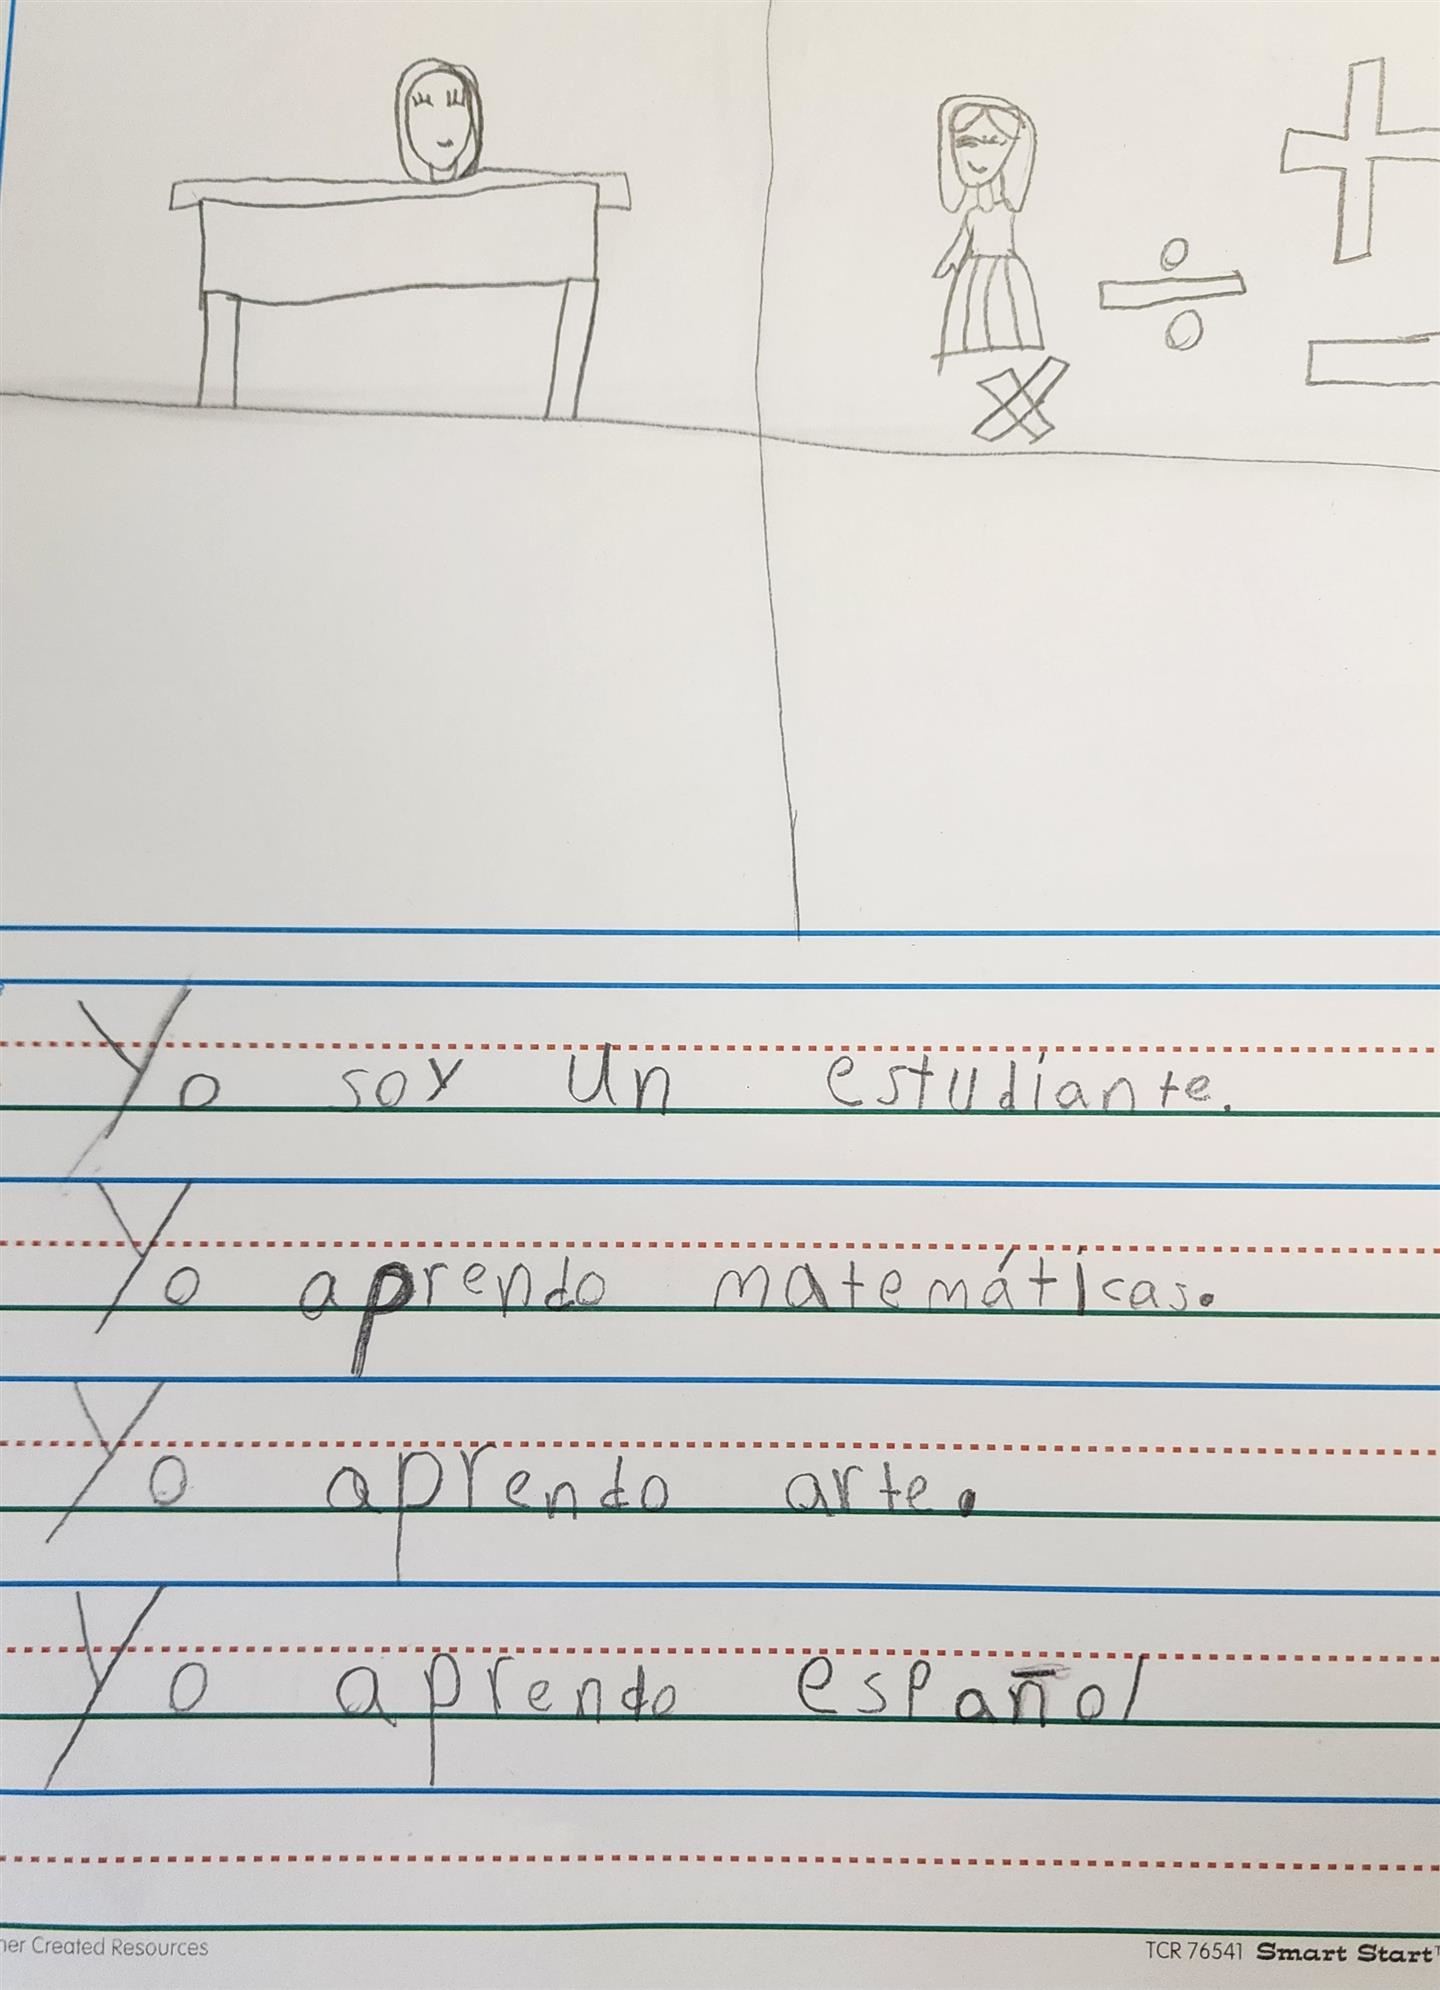 Yo soy un estudiante.
Yo aprendo matemáticas.
Yo aprendo arte.
Yo aprendo español
Created Resources
TCR 76541 Smart Start